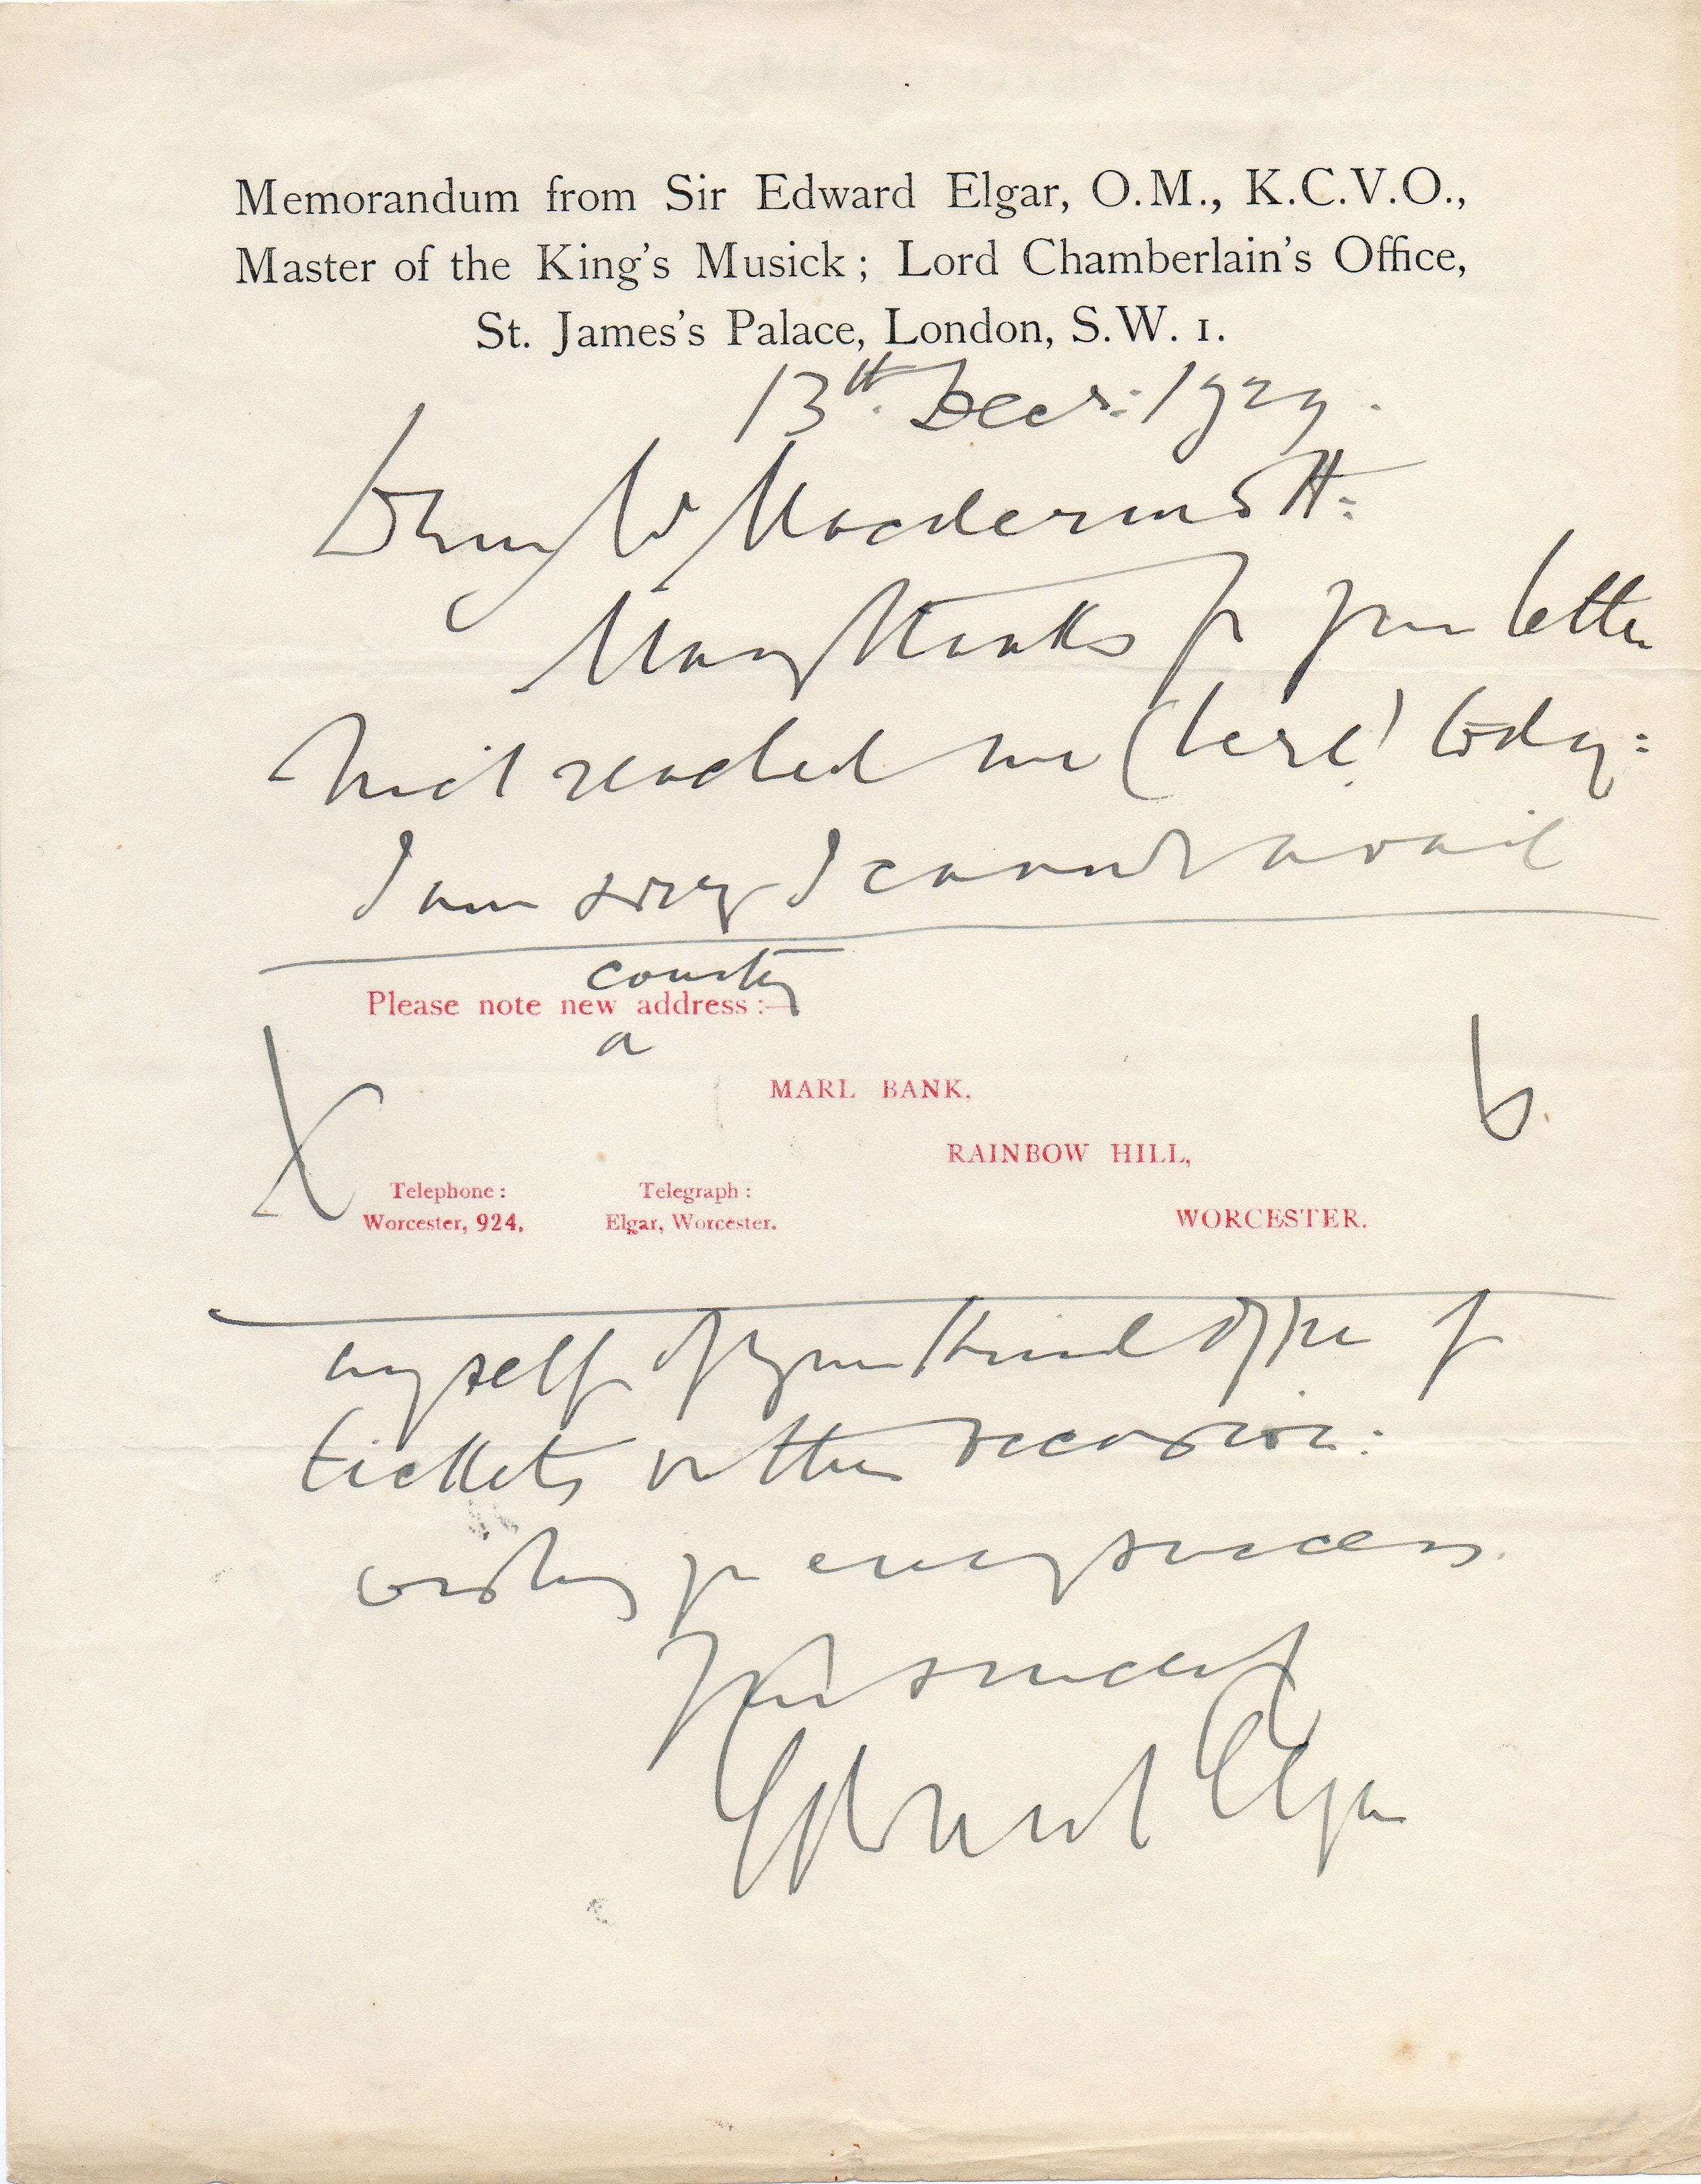 Memorandum from Sir Edward Elgar, O.M., K.C.V.O.,
Master of the King's Musick; Lord Chamberlain's Office,
St. James's Palace, London, S.W. 1.
13th. Decr: 1929.
Dear Mr Macdermott:
Many thanks for your letter
which reached me (here) today:
I am sorry I cannot avail
country
Please note new address:—
a
MARL BANK,
RAINBOW HILL,
Telephone: Telegraph:
Worcester, 924. Elgar, Worcester. WORCESTER.
X b.
myself of your kind offer of
tickets on this occasion:
wishing you every success.
Yours sincerely
Edward Elgar